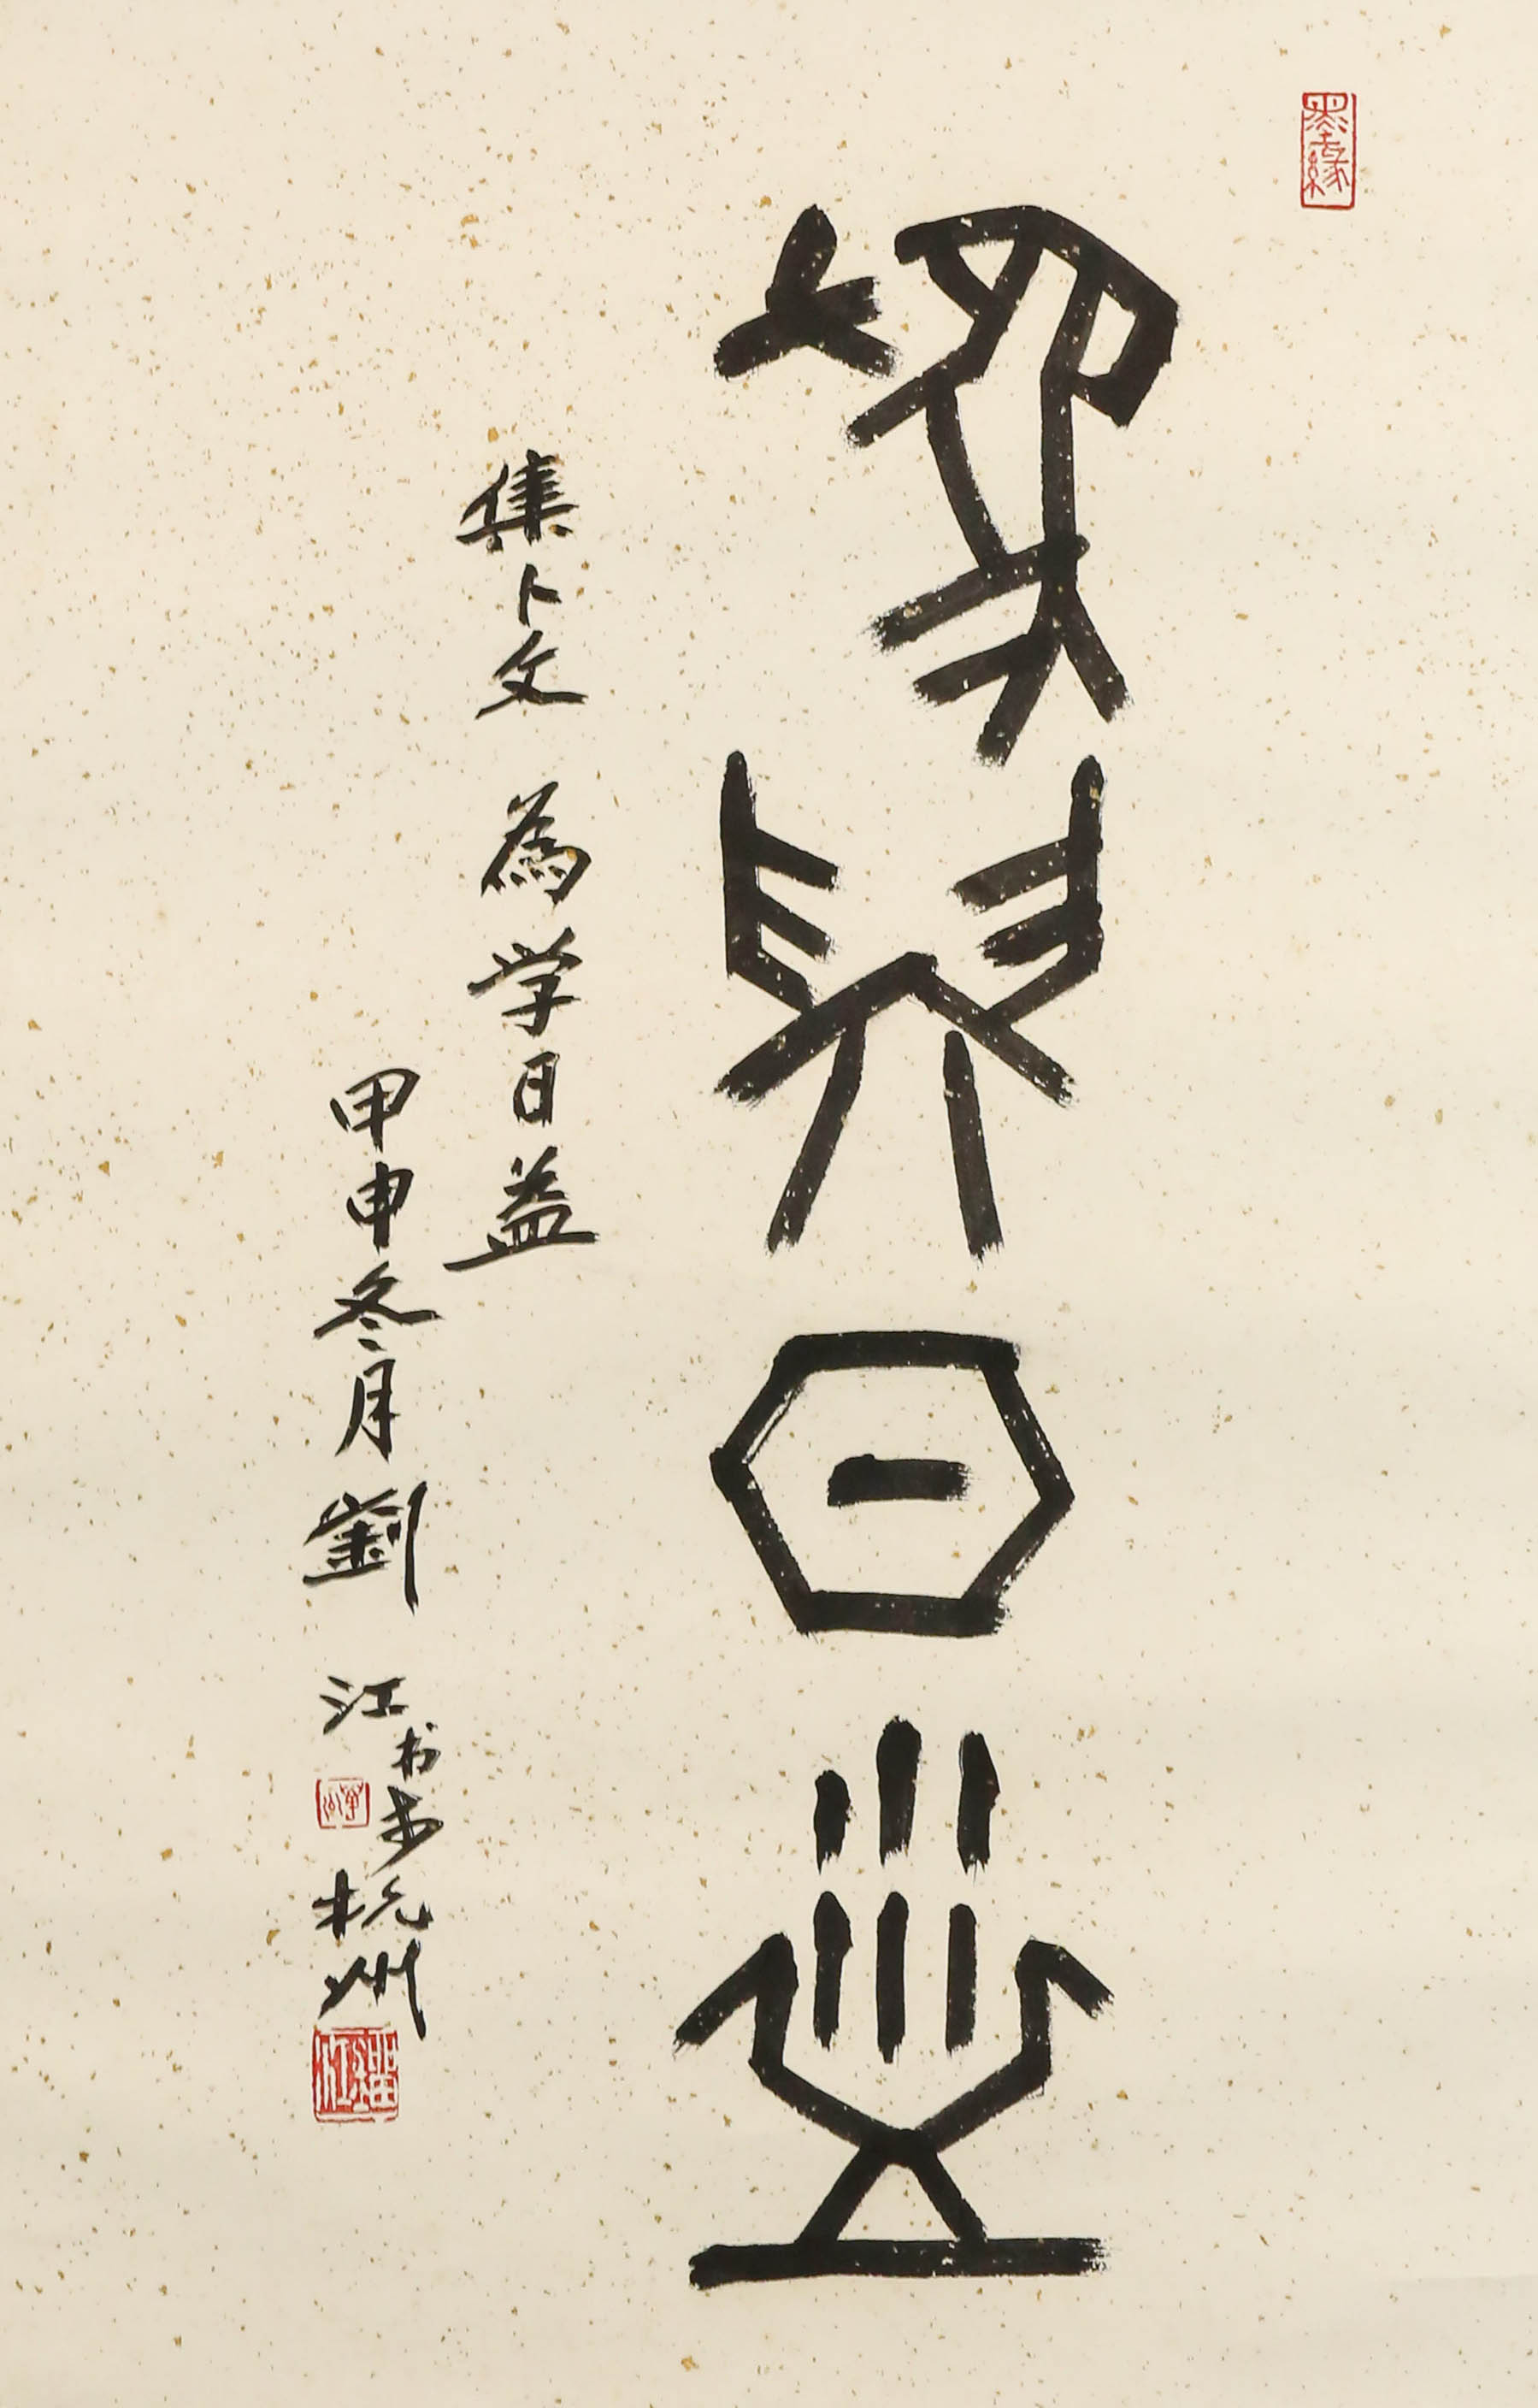 墨缘
為學日益
集卜文 為学日益
甲申冬月劉江书於杭州